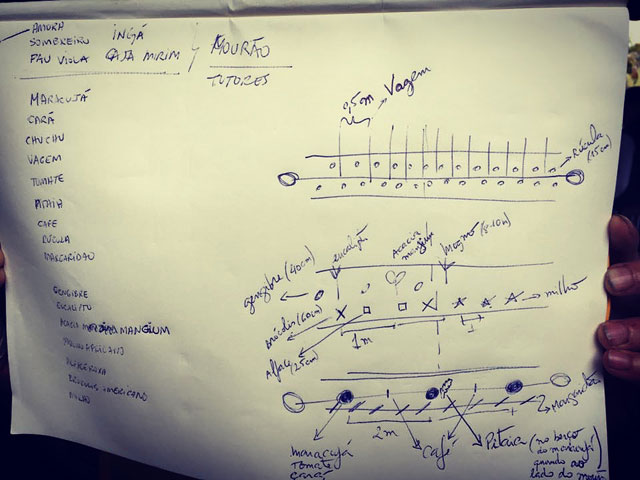 AMORA INGÁ
SOMBREIRO CAJÁ MIRIM Y MOURÃO
PAU VIOLA
TUTORES
MARACUJÁ
CARÁ
CHUCHU
VAGEM
TOMATE
PITAIA
CAFÉ
RÚCULA
MARGARIDÃO
GENGIBRE
EUCALIPTO
MANGIUM
0,5m Vagem
Rúcula
(15cm)
eucalipto
Acacia
mangium
Mogno (8-10m)
gengibre (40cm)
milho
(60cm)
Alface
(25cm)
1m
2m
maracujá
Tomate
Cará
Café
Pitaia (no berço
do maracujá
quando ao
lado do mourão)